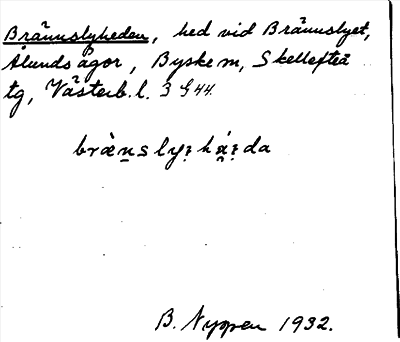 Brännslyheden, hed vid Brännslyet,
Ålunds ägor, Byske m, Skellefteå
tg, Västerb. l. 3 § 44.
bràn̠slyı̣ há̯ı̣da
B. Nyppen 1932.